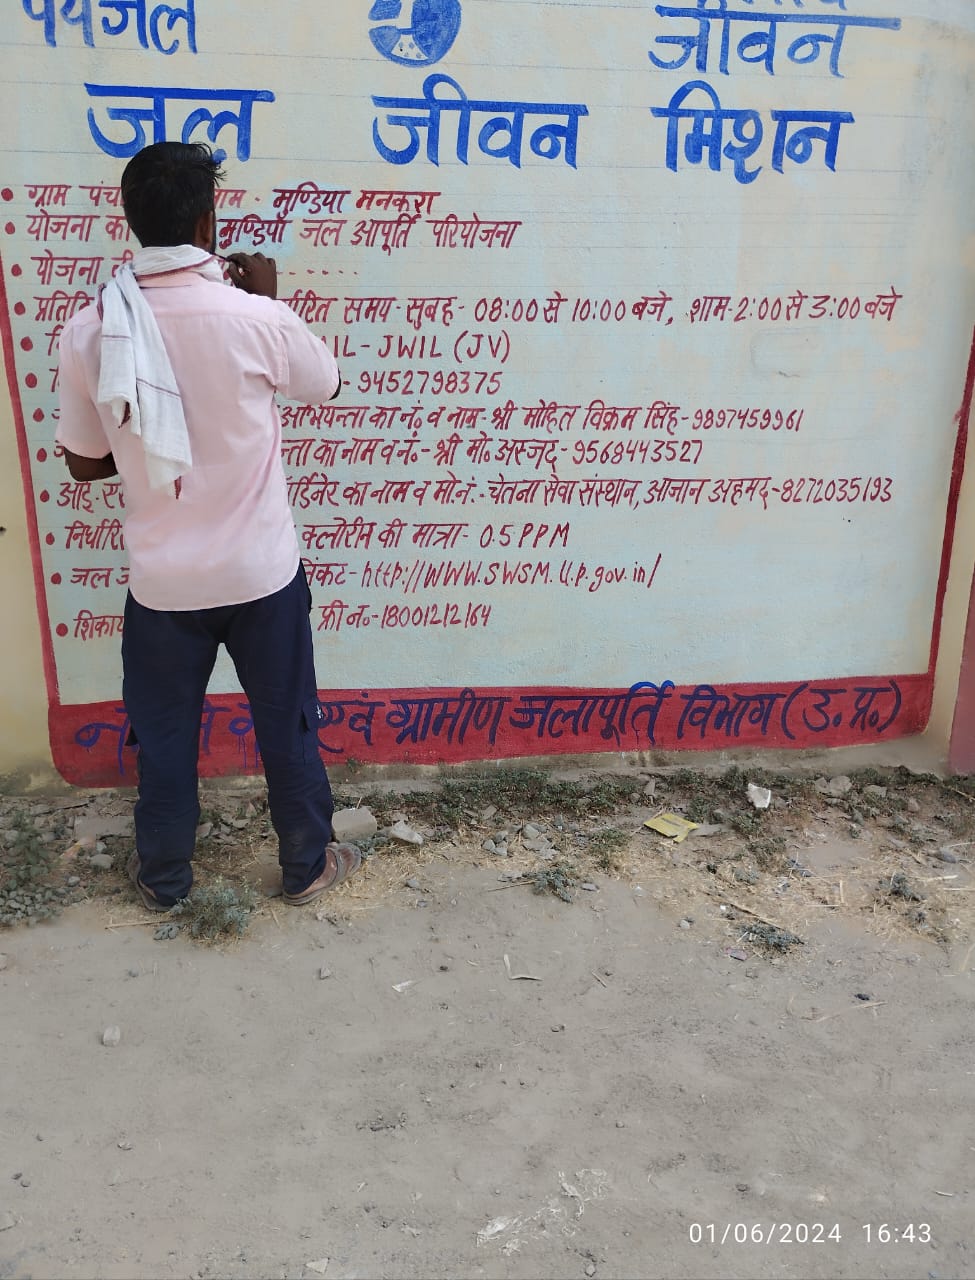 पेयजल जीवन
जल जीवन मिशन
• ग्राम पंचा नाम - मुण्डिया मनकरा
• योजना का मुण्डिया जल आपूर्ति परियोजना
• योजना
• प्रतिदि र्धारित समय - सुबह - 08:00 से 10:00 बजे, शाम - 2:00 से 3:00 बजे
• MIL - JWIL (JV)
• - 9452798375
• अभियन्ता का नं० व नाम - श्री मोहित विक्रम सिंह - 9897459961
• न्ता का नाम व नं. - श्री मो० अस्जद - 9568443527
• आई. र्डिनेर का नाम व मो नं. - चेतना सेवा संस्थान, आजान अहमद - 8272035193
• निर्धारि क्लोरीन की मात्रा - 0.5 PPM
• जल ज लिंकट - http://WWW.SWSM.U.p.gov.in/
• शिकाय फ्री न० - 18001212164
एवं ग्रामीण जलापूर्ति विभाग (उ. प्र.)
01/06/2024 16:43